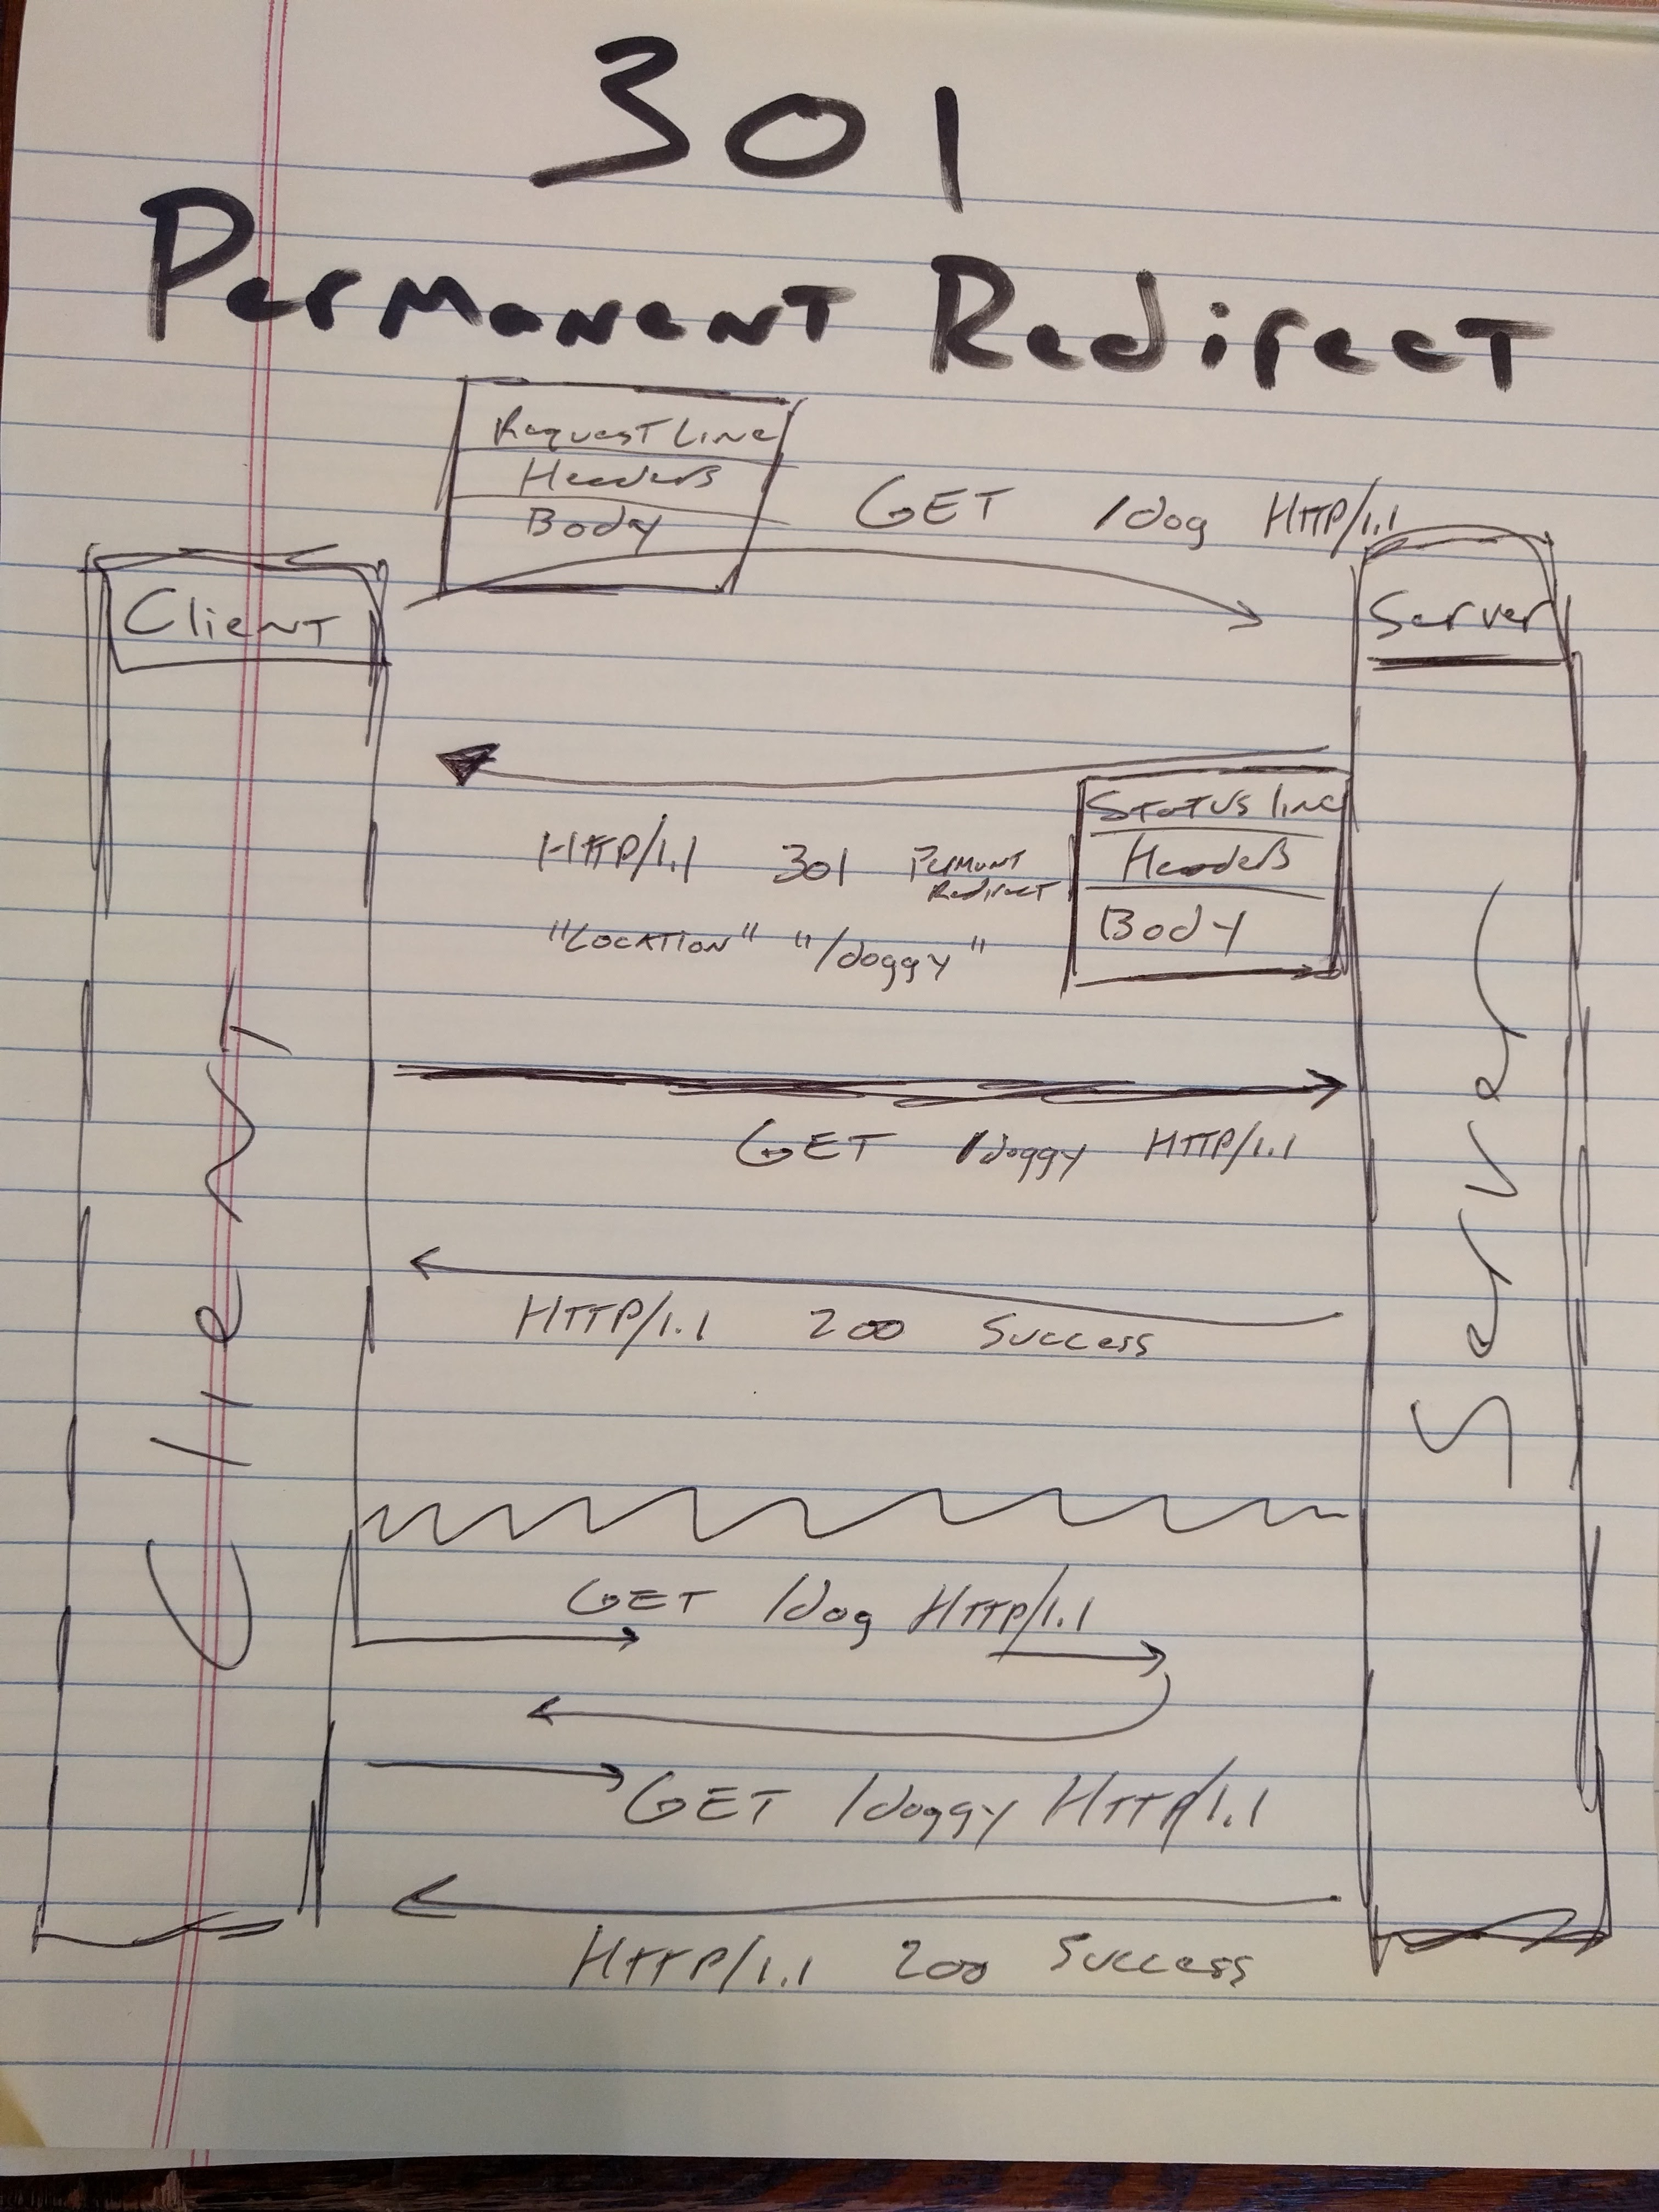 301
Permanent Redirect
Request Line
Headers
Body
GET /dog HTTP/1.1
Client
Server
Status line
Headers
Body
HTTP/1.1 301 Permont Redirect
"LOCATION" "/doggy"
GET /doggy HTTP/1.1
HTTP/1.1 200 Success
Client
Server
GET /dog HTTP/1.1
GET /doggy HTTP/1.1
HTTP/1.1 200 Success